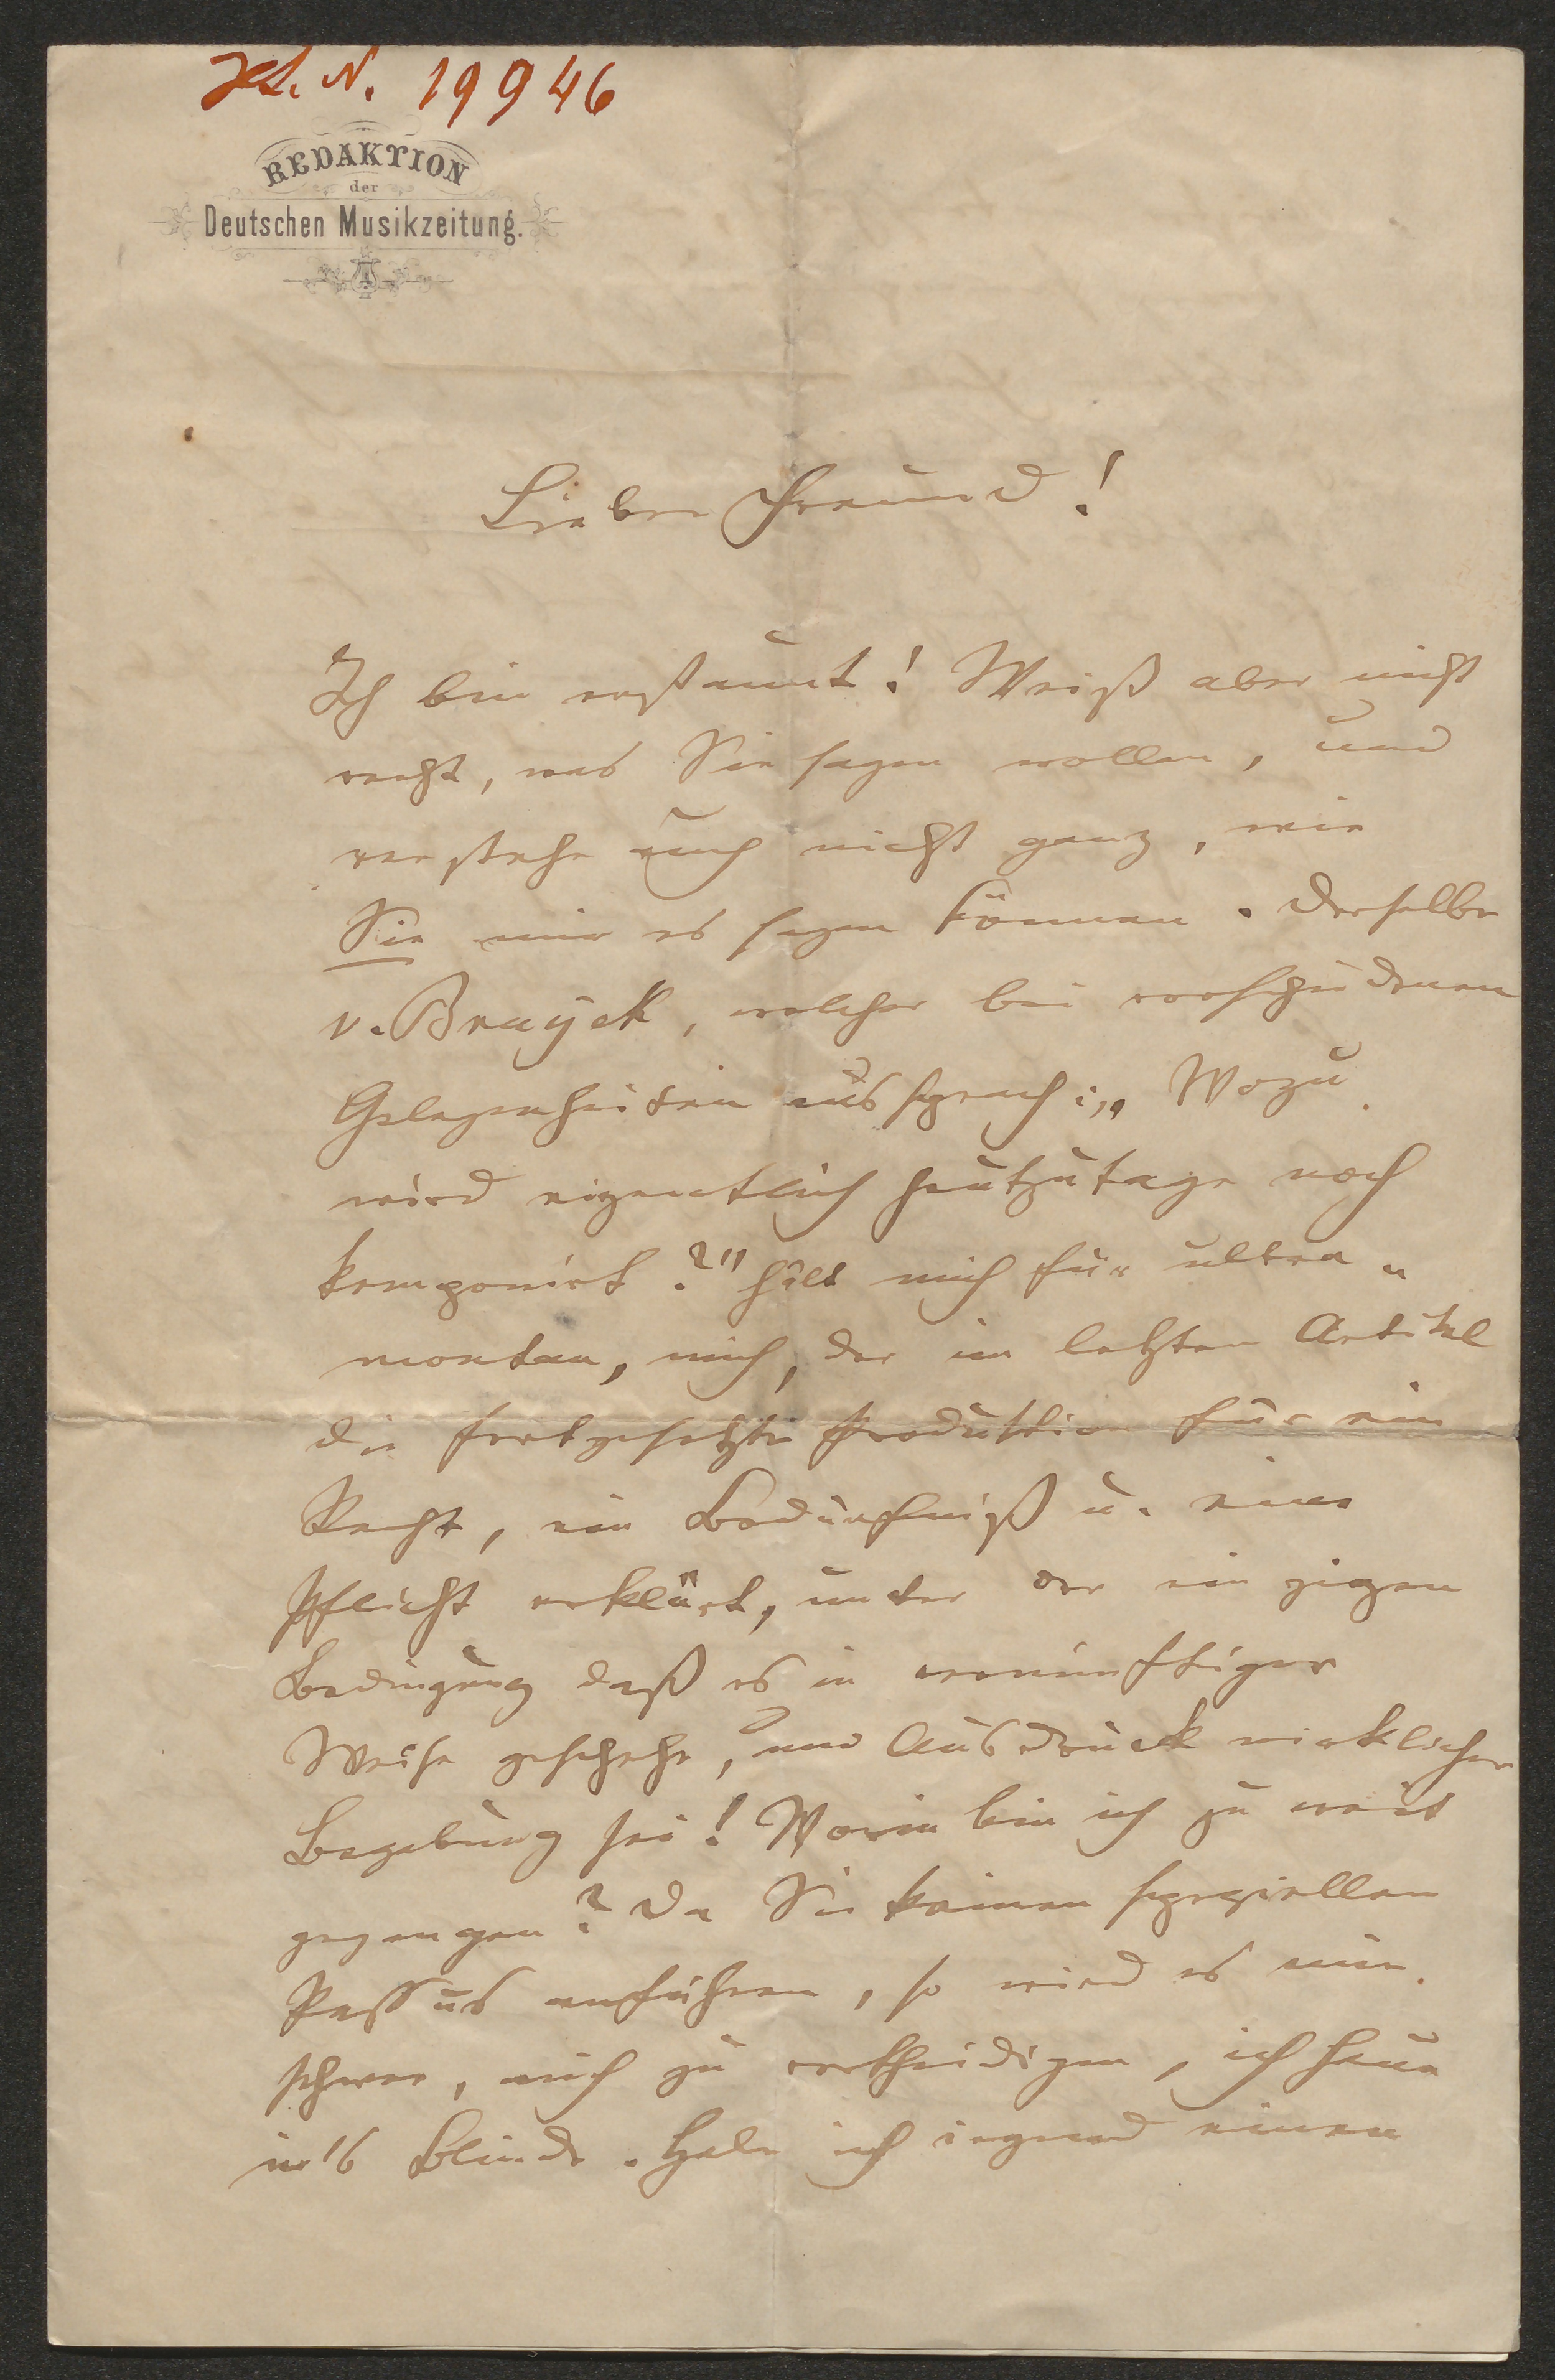 H.I.N. 19946
REDAKTION
der
Deutschen Musikzeitung.
Lieber Freund!
Ich bin erstaunt! Weiß aber nicht
recht, was Sie sagen wollen, und
verstehe auch nicht ganz, wie
Sie mir es sagen können. Derselbe
v. Bruyck, welcher bei verschiedenen
Gelegenheiten aussprach: „Wozu
wird eigentlich heutzutage noch
komponirt?" hält mich für ultra-
montan, mich, der im letzten Artikel
die fortgesetzte Produktion für ein
Recht, ein Bedürfniß u. eine
Pflicht erklärt, unter der einzigen
Bedingung daß es in vernünftiger
Weise geschehe, und Ausdruck wirklicher
Begabung sei! Worin bin ich zu weit
gegangen? Da Sie keinen speziellen
Passus anführen, so wird es mir
schwer, mich zu vertheidigen, ich haue
in's Blinde. Habe ich irgend einen